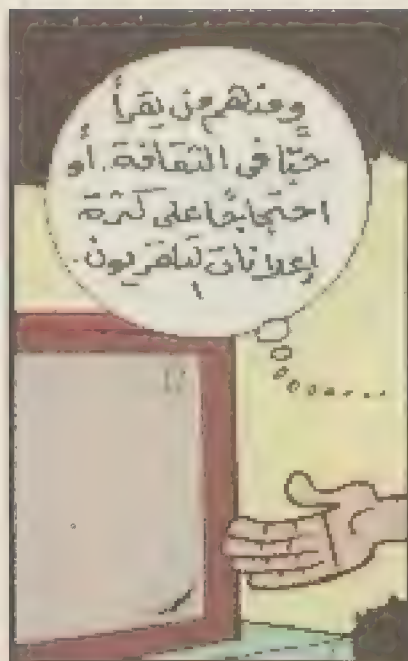 ومنهم من يقرأ
حبًّا فى الثقافة.. أو
احتجاجًا على كثرة
إعلانات التليفزيون.